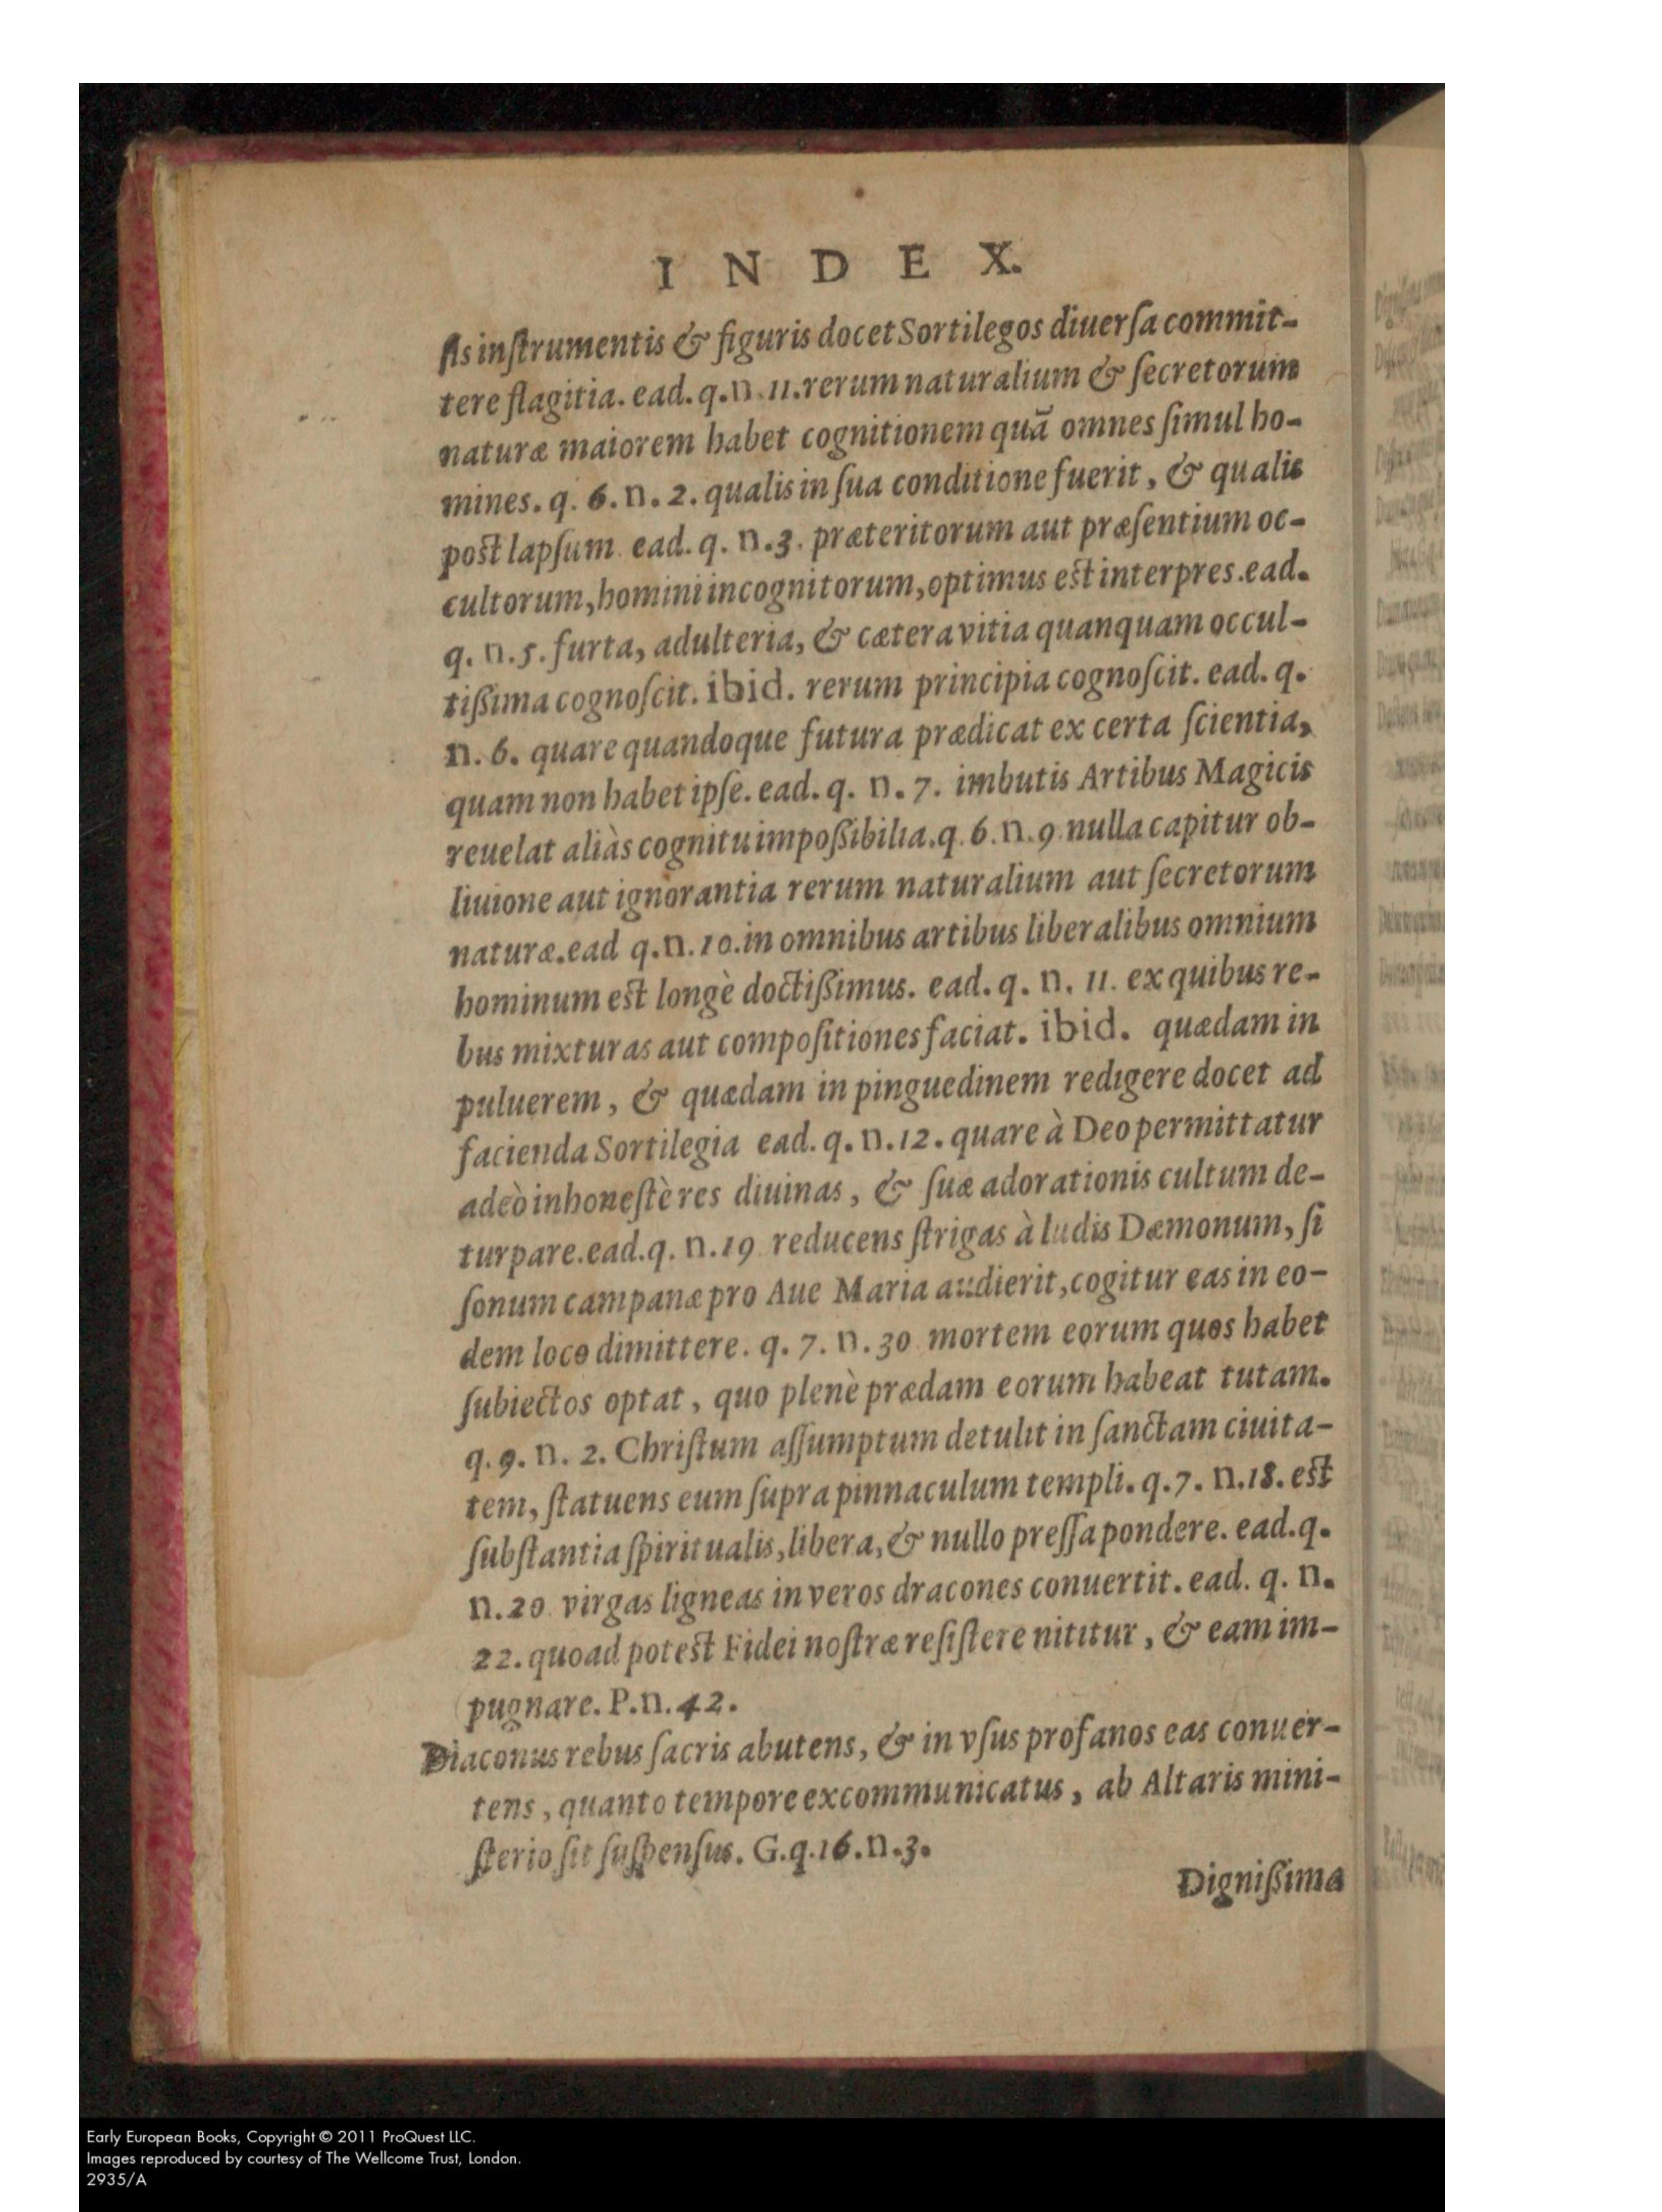 INDEX.
ſis inſtrumentis & figuris docet Sortilegos diuerſa commit-
tere flagitia. ead. q. n. 11. rerum naturalium & ſecretorum
naturæ maiorem habet cognitionem quã omnes ſimul ho-
mines. q. 6. n. 2. qualis in ſua conditione fuerit, & qualis
poſt lapſum. ead. q. n. 3. præteritorum aut præſentium oc-
cultorum, homini incognitorum, optimus eſt interpres. ead.
q. n. 5. furta, adulteria, & cætera vitia quanquam occul-
tißima cognoſcit. ibid. rerum principia cognoſcit. ead. q.
n. 6. quare quandoque futura prædicat ex certa ſcientia,
quam non habet ipſe. ead. q. n. 7. imbutis Artibus Magicis
reuelat aliàs cognitu impoßibilia. q. 6. n. 9. nulla capitur ob-
liuione aut ignorantia rerum naturalium aut ſecretorum
naturæ. ead q. n. 10. in omnibus artibus liberalibus omnium
hominum eſt longè doctißimus. ead. q. n. 11. ex quibus re-
bus mixturas aut compoſitiones faciat. ibid. quædam in
puluerem, & quædam in pinguedinem redigere docet ad
facienda Sortilegia ead. q. n. 12. quare à Deo permittatur
adeò inhoneſtè res diuinas, & ſuæ adorationis cultum de-
turpare. ead. q. n. 19. reducens ſtrigas à ludis Dæmonum, ſi
ſonum campanæ pro Aue Maria audierit, cogitur eas in eo-
dem loco dimittere. q. 7. n. 30. mortem eorum quos habet
ſubiectos optat, quo plenè prædam eorum habeat tutam.
q. 9. n. 2. Chriſtum aſſumptum detulit in ſanctam ciuita-
tem, ſtatuens eum ſupra pinnaculum templi. q. 7. n. 18. eſt
ſubſtantia ſpiritualis, libera, & nullo preſſa pondere. ead. q.
n. 20. virgas ligneas in veros dracones conuertit. ead. q. n.
22. quoad poteſt Fidei noſtræ reſiſtere nititur, & eam im-
pugnare. P. n. 42.
Diaconus rebus ſacris abutens, & in vſus profanos eas conuer-
tens, quanto tempore excommunicatus, ab Altaris mini-
ſterio ſit ſuſpenſus. G. q. 16. n. 3.
Dignißima
Early European Books, Copyright © 2011 ProQuest LLC.
Images reproduced by courtesy of The Wellcome Trust, London.
2935/A